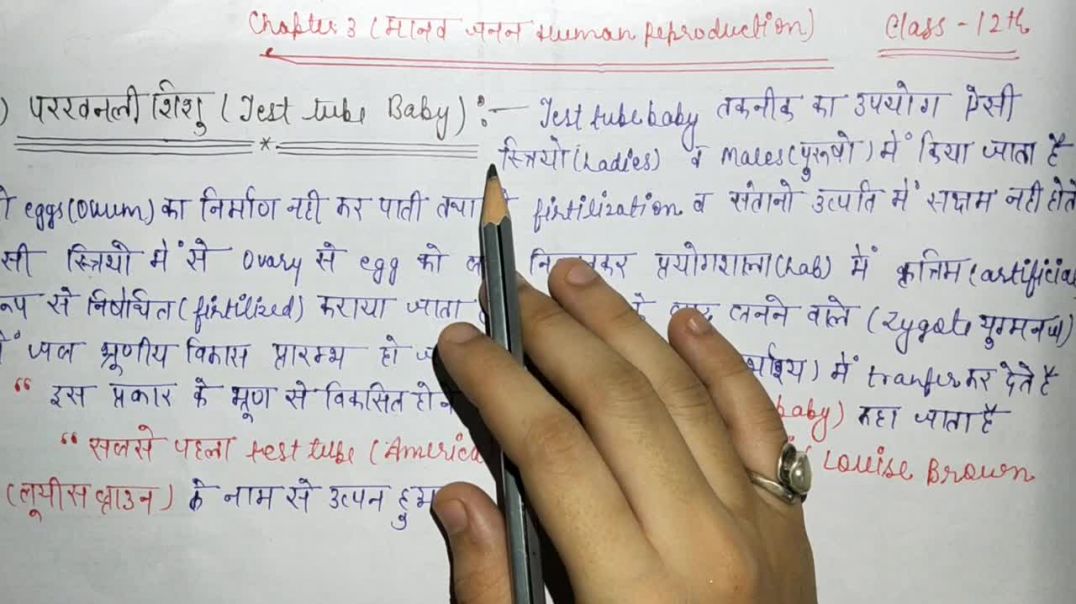 Chapter 3 (मानव जनन Human Reproduction) Class - 12th
) परखनली शिशु (Test tube Baby) :- Test tube baby तकनीक का उपयोग ऐसी
स्त्रियो (Ladies) व Males (पुरूषो) में किया जाता है
eggs (Ovum) का निर्माण नही कर पाती तथा firtilization व संतानो उत्पति में सक्षम नही होते
स्त्रियो में से Ovary से egg को प्रयोगशाला (Lab) में कृत्रिम (artificial
रूप से निषेचित (firtilized) कराया जाता बनने वाले (Zygote युग्मनज)
जब भ्रूणीय विकास प्रारम्भ हो में tranfer कर देते है
“ इस प्रकार के भ्रूण से विकसित होने baby) कहा जाता है
“ सबसे पहला test tube (America Louise Brown
(लूयीस ब्राउन) के नाम से उत्पन